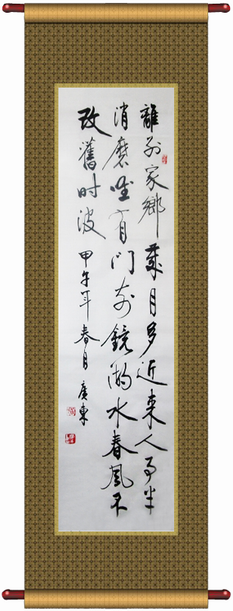 離别家鄉歲月多近来人事半
消磨唯有门前鏡湖水春風不
改舊时波
甲午年春月廣東